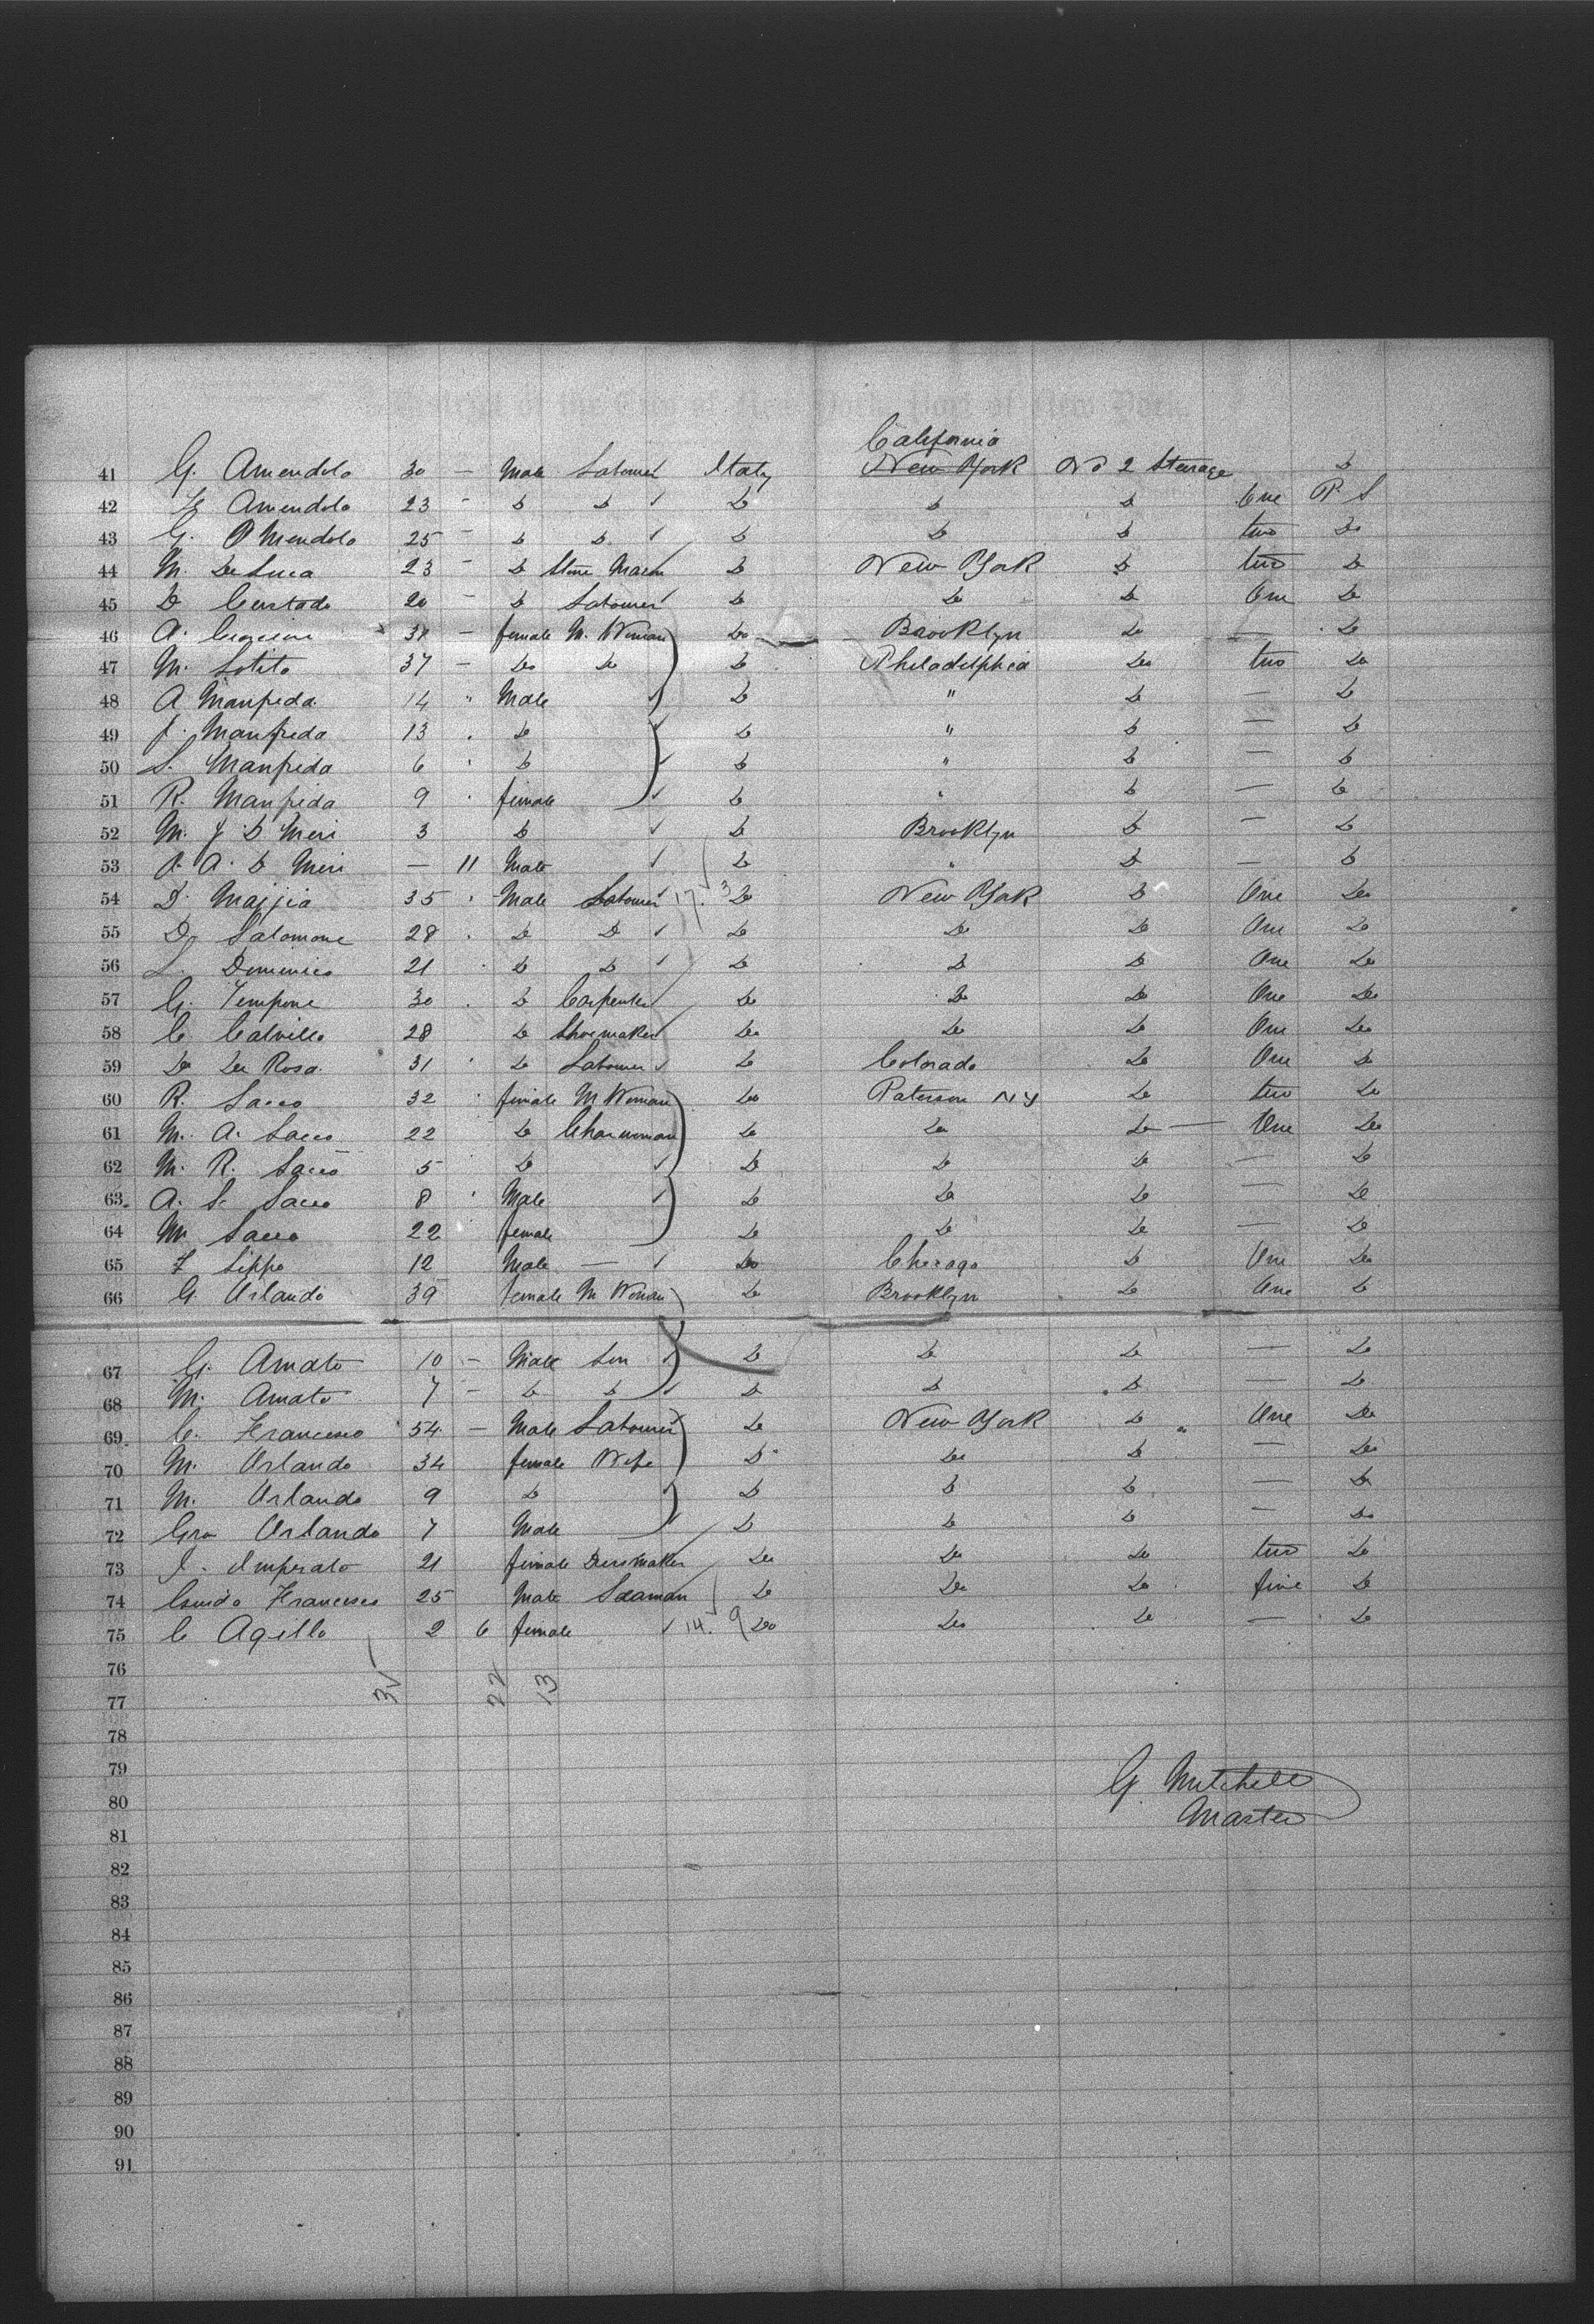 California
41 G. Amendolo 30 — Male Labourer Italy New York No 2 Steerage Do
42 F. Amendolo 23 - Do Do ✓ Do Do Do One P. S
43 G. Mendolo 25 - Do Do ✓ Do Do Do two Do
44 M. De Luca 23 - Do Stone Mason Do New York Do two Do
45 D 20 - Do Labourer Do Do Do One Do
46 A. 38 - female M. Woman Do Brooklyn Do — Do
47 M. Lotito 37 - Do Do Do Philadelphia Do two Do
48 A Manfreda 14 " Male ✓ Do " Do — Do
49 J. Manfreda 13 . Do ✓ Do " Do — Do
50 S. Manfreda 6 ' Do ✓ Do " Do — Do
51 R. Manfreda 9 . female ✓ Do " Do — Do
52 M. J. D Meri 3 Do ✓ Do Brooklyn Do — Do
53 A. D Meri — 11 Male ✓ Do " Do — Do
54 D. Majjia 35 . Male Labourer ✓ 17. 3 Do New York Do One Do
55 D. Salomone 28 . Do Do ✓ Do Do Do One Do
56 L. Domenico 21 . Do Do ✓ Do Do Do One Do
57 G. Tempone 30 . Do Carpenter Do Do Do One Do
58 C. Calvillo 28 Do Shoemaker Do Do Do One Do
59 De De Rosa 31 ' Do Labourer ✓ Do Colorado Do One Do
60 R. Sacco 32 ' female M Woman Do Paterson NY Do two Do
61 M. A. Sacco 22 Do Charwoman Do Do Do — One Do
62 M. R. Sacco 5 Do ✓ Do Do Do — Do
63 A. S. Sacco 8 ' Male ✓ Do Do Do — Do
64 M Sacco 22 female Do Do Do — Do
65 F Lippo 12 Male — ✓ Do Chicago Do One Do
66 G. Orlando 39 female M Woman Do Brooklyn Do One Do
67 G. Amato 10 - Male Son ✓ Do Do Do — Do
68 M. Amato 7 - Do Do ✓ Do Do Do — Do
69 C. Francesco 54 - Male Labourer Do New York Do " One Do
70 M. Orlando 34 female Wife Do Do Do — Do
71 M. Orlando 9 Do ✓ Do Do Do — Do
72 Gro Orlando 7 Male ✓ Do Do Do — Do
73 I. Imperato 21 female Dressmaker Do Do Do two Do
74 Guido Francesco 25 Male Seaman Do Do Do five Do
75 C Agillo 2 6 female ✓ 14. 9 Do Do Do — Do
76
35 22 13
77
78
79
G. Mitchell
80
Master
81
82
83
84
85
86
87
88
89
90
91